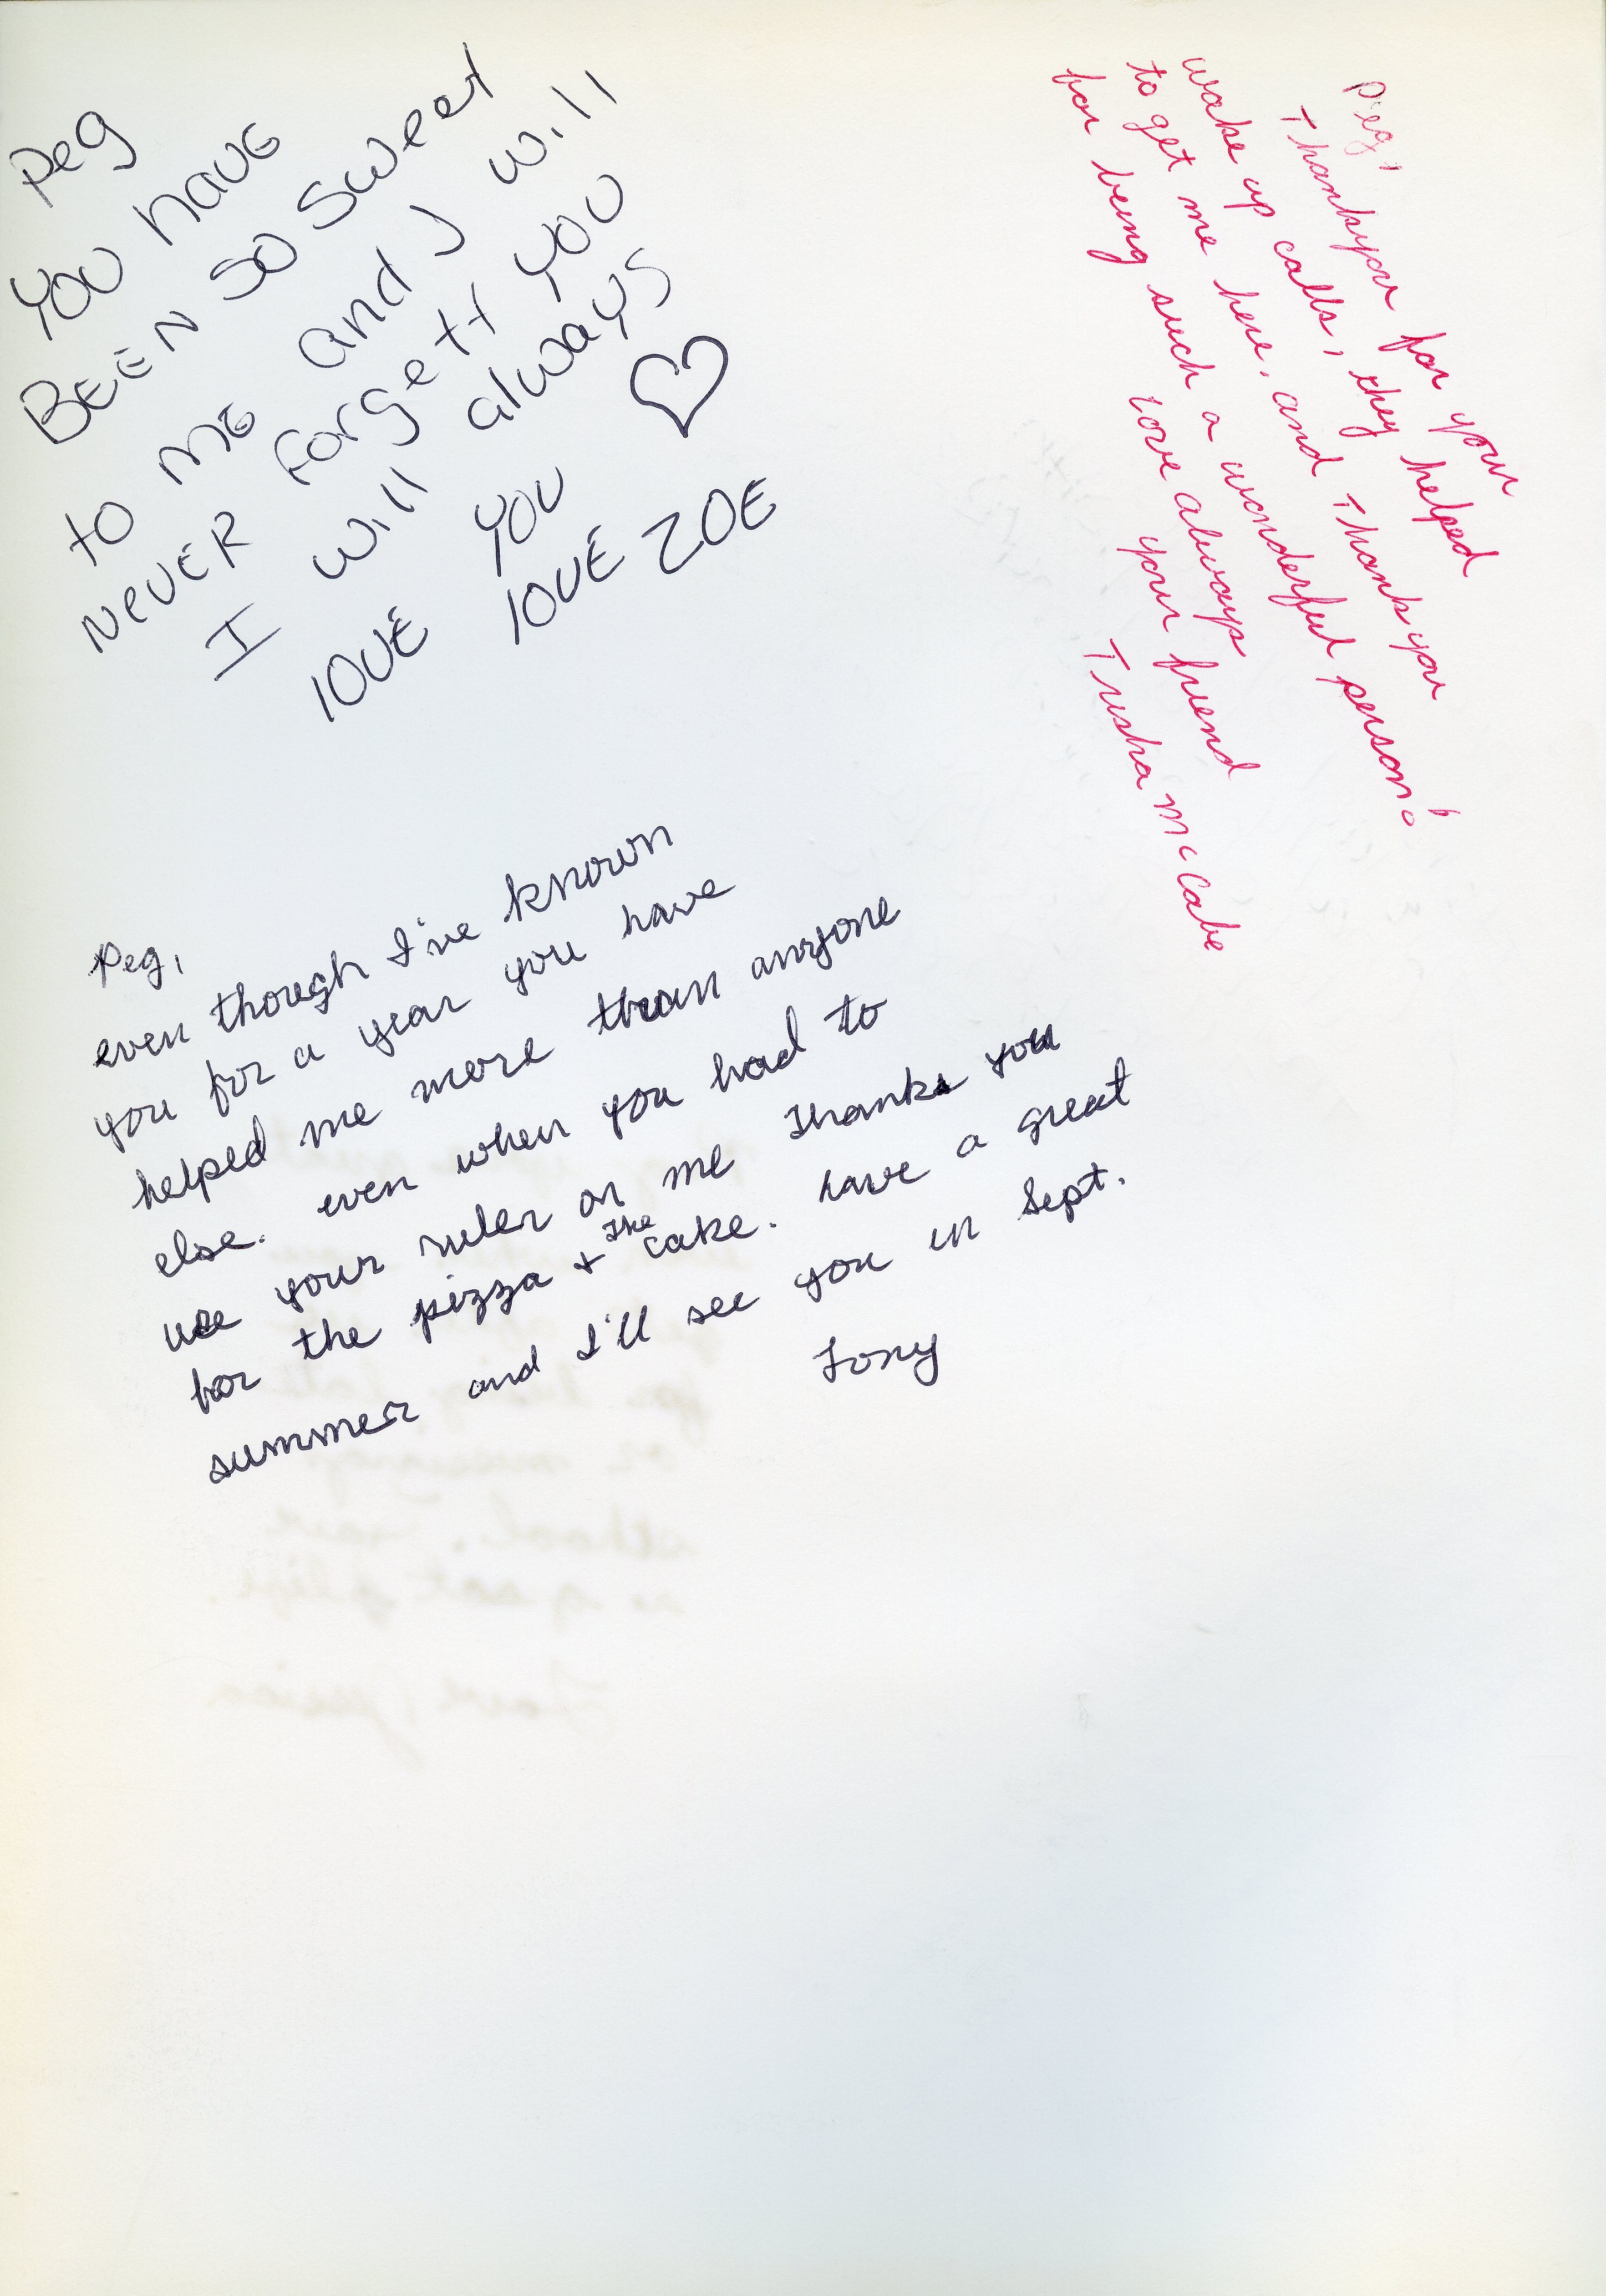 Peg
YOU HAVE
BEEN SO Sweet
to me and I will
NEVER Forgett YOU
I will always
lOVE YOU ♡
lOVE ZOE
Peg,
Thankyou for your
wake up calls, they helped
to get me here, and Thank you
for being such a wonderful person!
Love always
your friend
Trisha McCabe
Peg,
even though I've known
you for a year you have
helped me more than anyone
else. even when you had to
use your ruler on me Thanks you
for the pizza + the cake. have a great
summer and I'll see you in Sept.
Tony